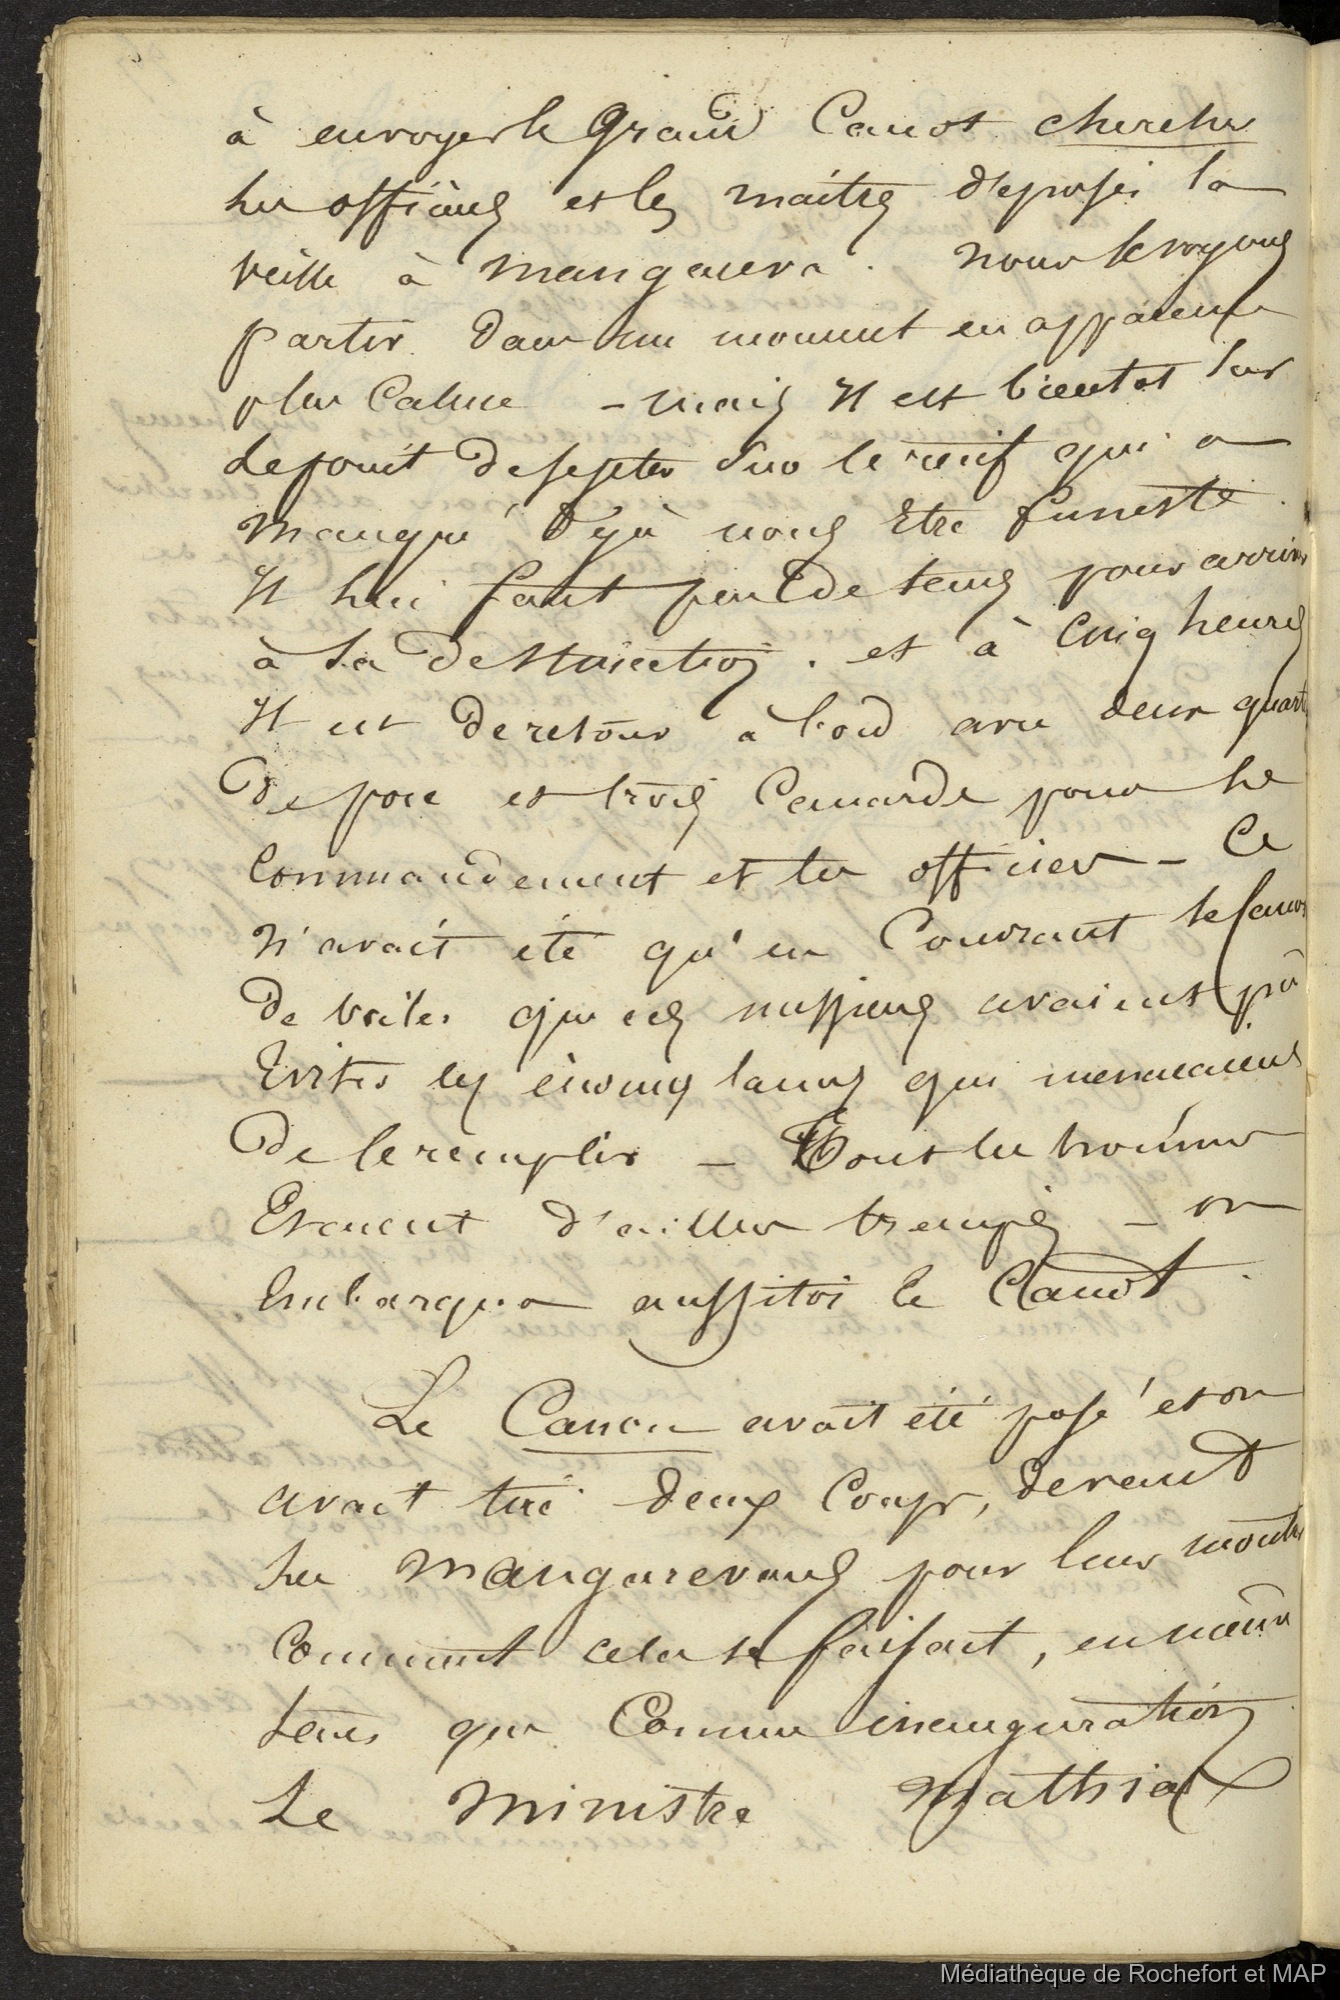 à envoyer le Grand Canot chercher
les officiers et les maitres déposés la
veille à mangareva. nous le voyons
partir dans un moment en apparence
plus Calme - mais Il est bientot sur
le point de se jeter sur le récif qui a
manqué déjà nous Etre funeste.
Il lui faut peu de tems pour arriver
à sa destination. et à cinq heures
Il est de retour à bord avec deux quarts
de porc et trois Canards pour le
Commandement et les officiers - Ce
n'avait été qu'en Couvrant le canot
de voiles que ces messieurs avaient pû
Eviter les énormes lames qui menacaient
de le remplir - Tous les hommes
Etaient d'ailleurs trempés - on
Embarqua aussitot le Canot.
Le Canon avait été posé et on
avait tiré deux Coups, devant
les mangareviens pour leur montrer
Comment cela se faisait, en même
tems que Comme inauguration
Le Ministre Mathia
Médiathèque de Rochefort et MAP